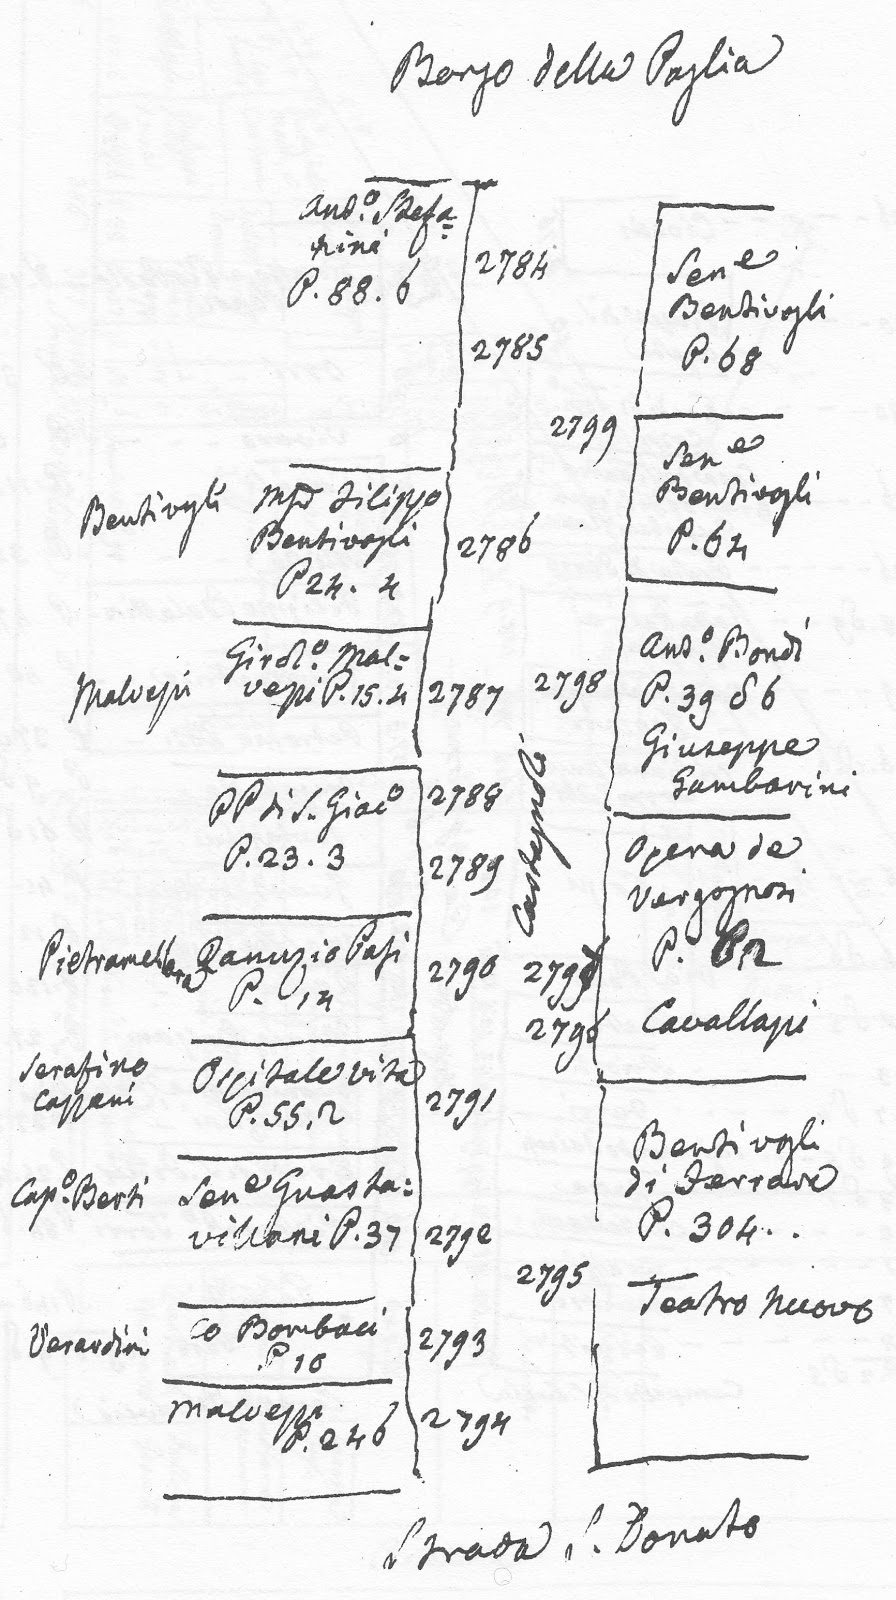 Borgo della Paglia
And.o Stefa=
nini
P. 88. 6
2784
2785
Sen.e
Bentivogli
P. 68
2799
Sen.e
Bentivogli
P. 64
Bentivogli
Filippo
Bentivogli
P 24. 4
2786
Malvezzi
Girol.o Mal=
vezzi P. 15. 4
2787
2798
And.o Bondi
P. 39 & 6
Giuseppe
Gambarini
PP di S. Giac.o
P. 23. 3
2788
2789
Castagnoli
Opera de
Vergognosi
P.
Pietramellara
Ranuzio Pasi
P. 14
2790
2796
Cavallazzi
Serafino
Cappani
Ospitale vita
P. 55. 2
2791
Bentivogli
di Ferrara
P. 304. .
Cap.o Berti
Sen.e Guasta=
villani P. 37
2792
2795
Teatro Nuovo
Verardini
Co Bombaci
P 10
2793
Malvezzi
P. 246
2794
Strada S. Donato